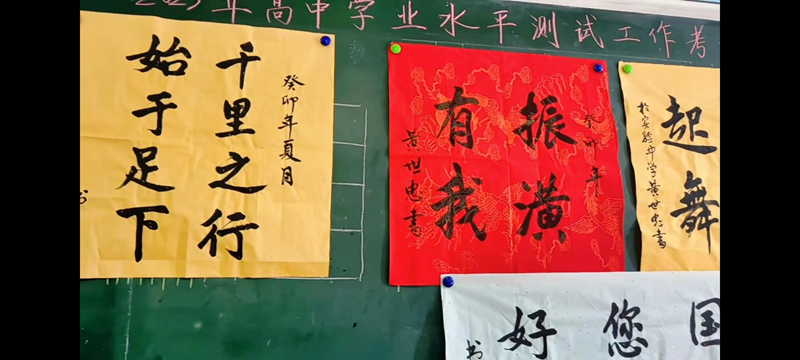 2023年高中学业水平测试工作考
癸卯年夏月
千里之行
始于足下
书
癸卯年
振潢
有我
黄世忠書
起舞
於实验中学黄世忠書
国您好
书